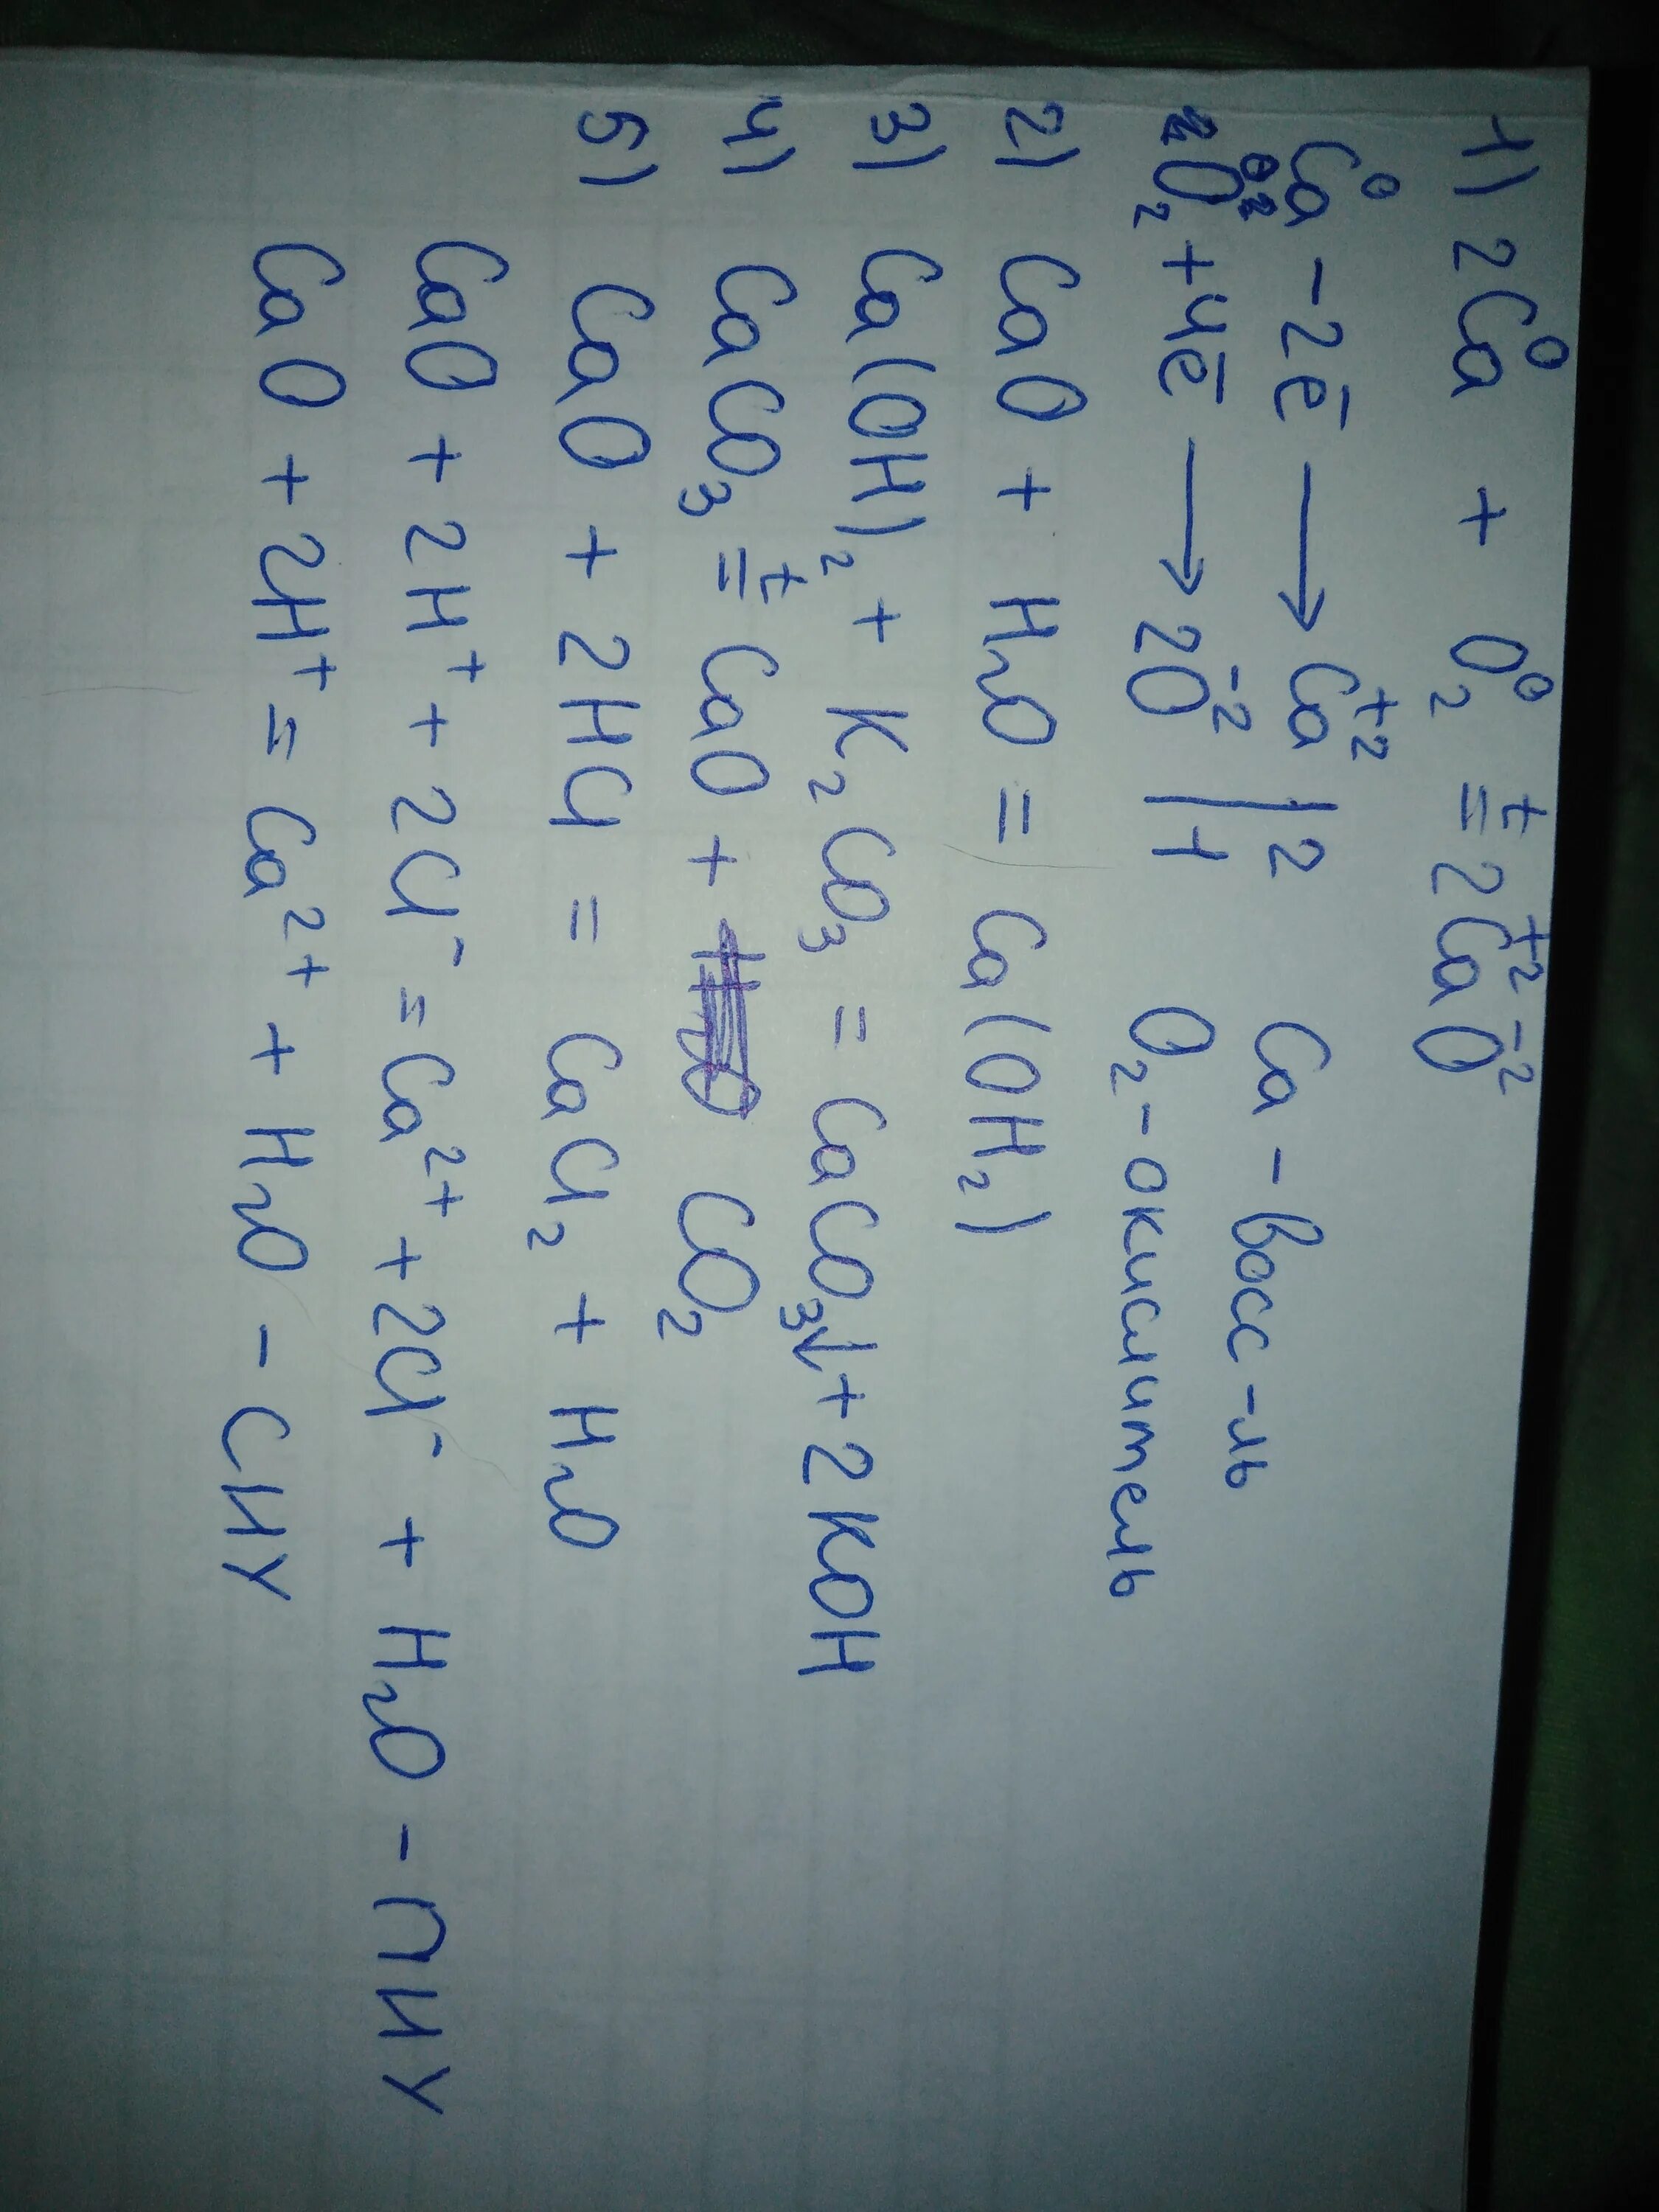 1) 2Ca⁰ + O₂⁰ =ᵗ 2Ca⁺²O⁻²
Ca⁰ - 2ē → Ca⁺² | 2 Ca - восс-ль
O₂⁰ + 4ē → 2O⁻² | 1 O₂ - окислитель
2) CaO + H₂O = Ca(OH₂)
3) Ca(OH)₂ + K₂CO₃ = CaCO₃↓ + 2KOH
4) CaCO₃ =ᵗ CaO + CO₂
5) CaO + 2HCl = CaCl₂ + H₂O
CaO + 2H⁺ + 2Cl⁻ = Ca²⁺ + 2Cl⁻ + H₂O - ПИУ
CaO + 2H⁺ = Ca²⁺ + H₂O - СИУ